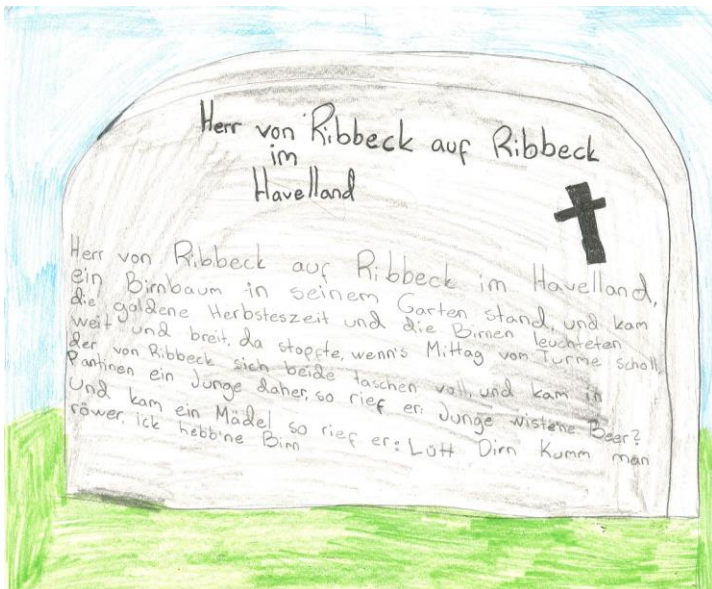 Herr von Ribbeck auf Ribbeck
im
Havelland
Herr von Ribbeck auf Ribbeck im Havelland,
ein Birnbaum in seinem Garten stand, und kam
die goldene Herbsteszeit und die Birnen leuchteten
weit und breit, da stopfte, wenn's Mittag vom Turme scholl
der von Ribbeck sich beide taschen voll, und kam in
Pantinen ein Junge daher, so rief er: Junge wistene Beer?
Und kam ein Mädel so rief er: Lütt Dirn Kumm man
röwer, ick hebb'ne Birn